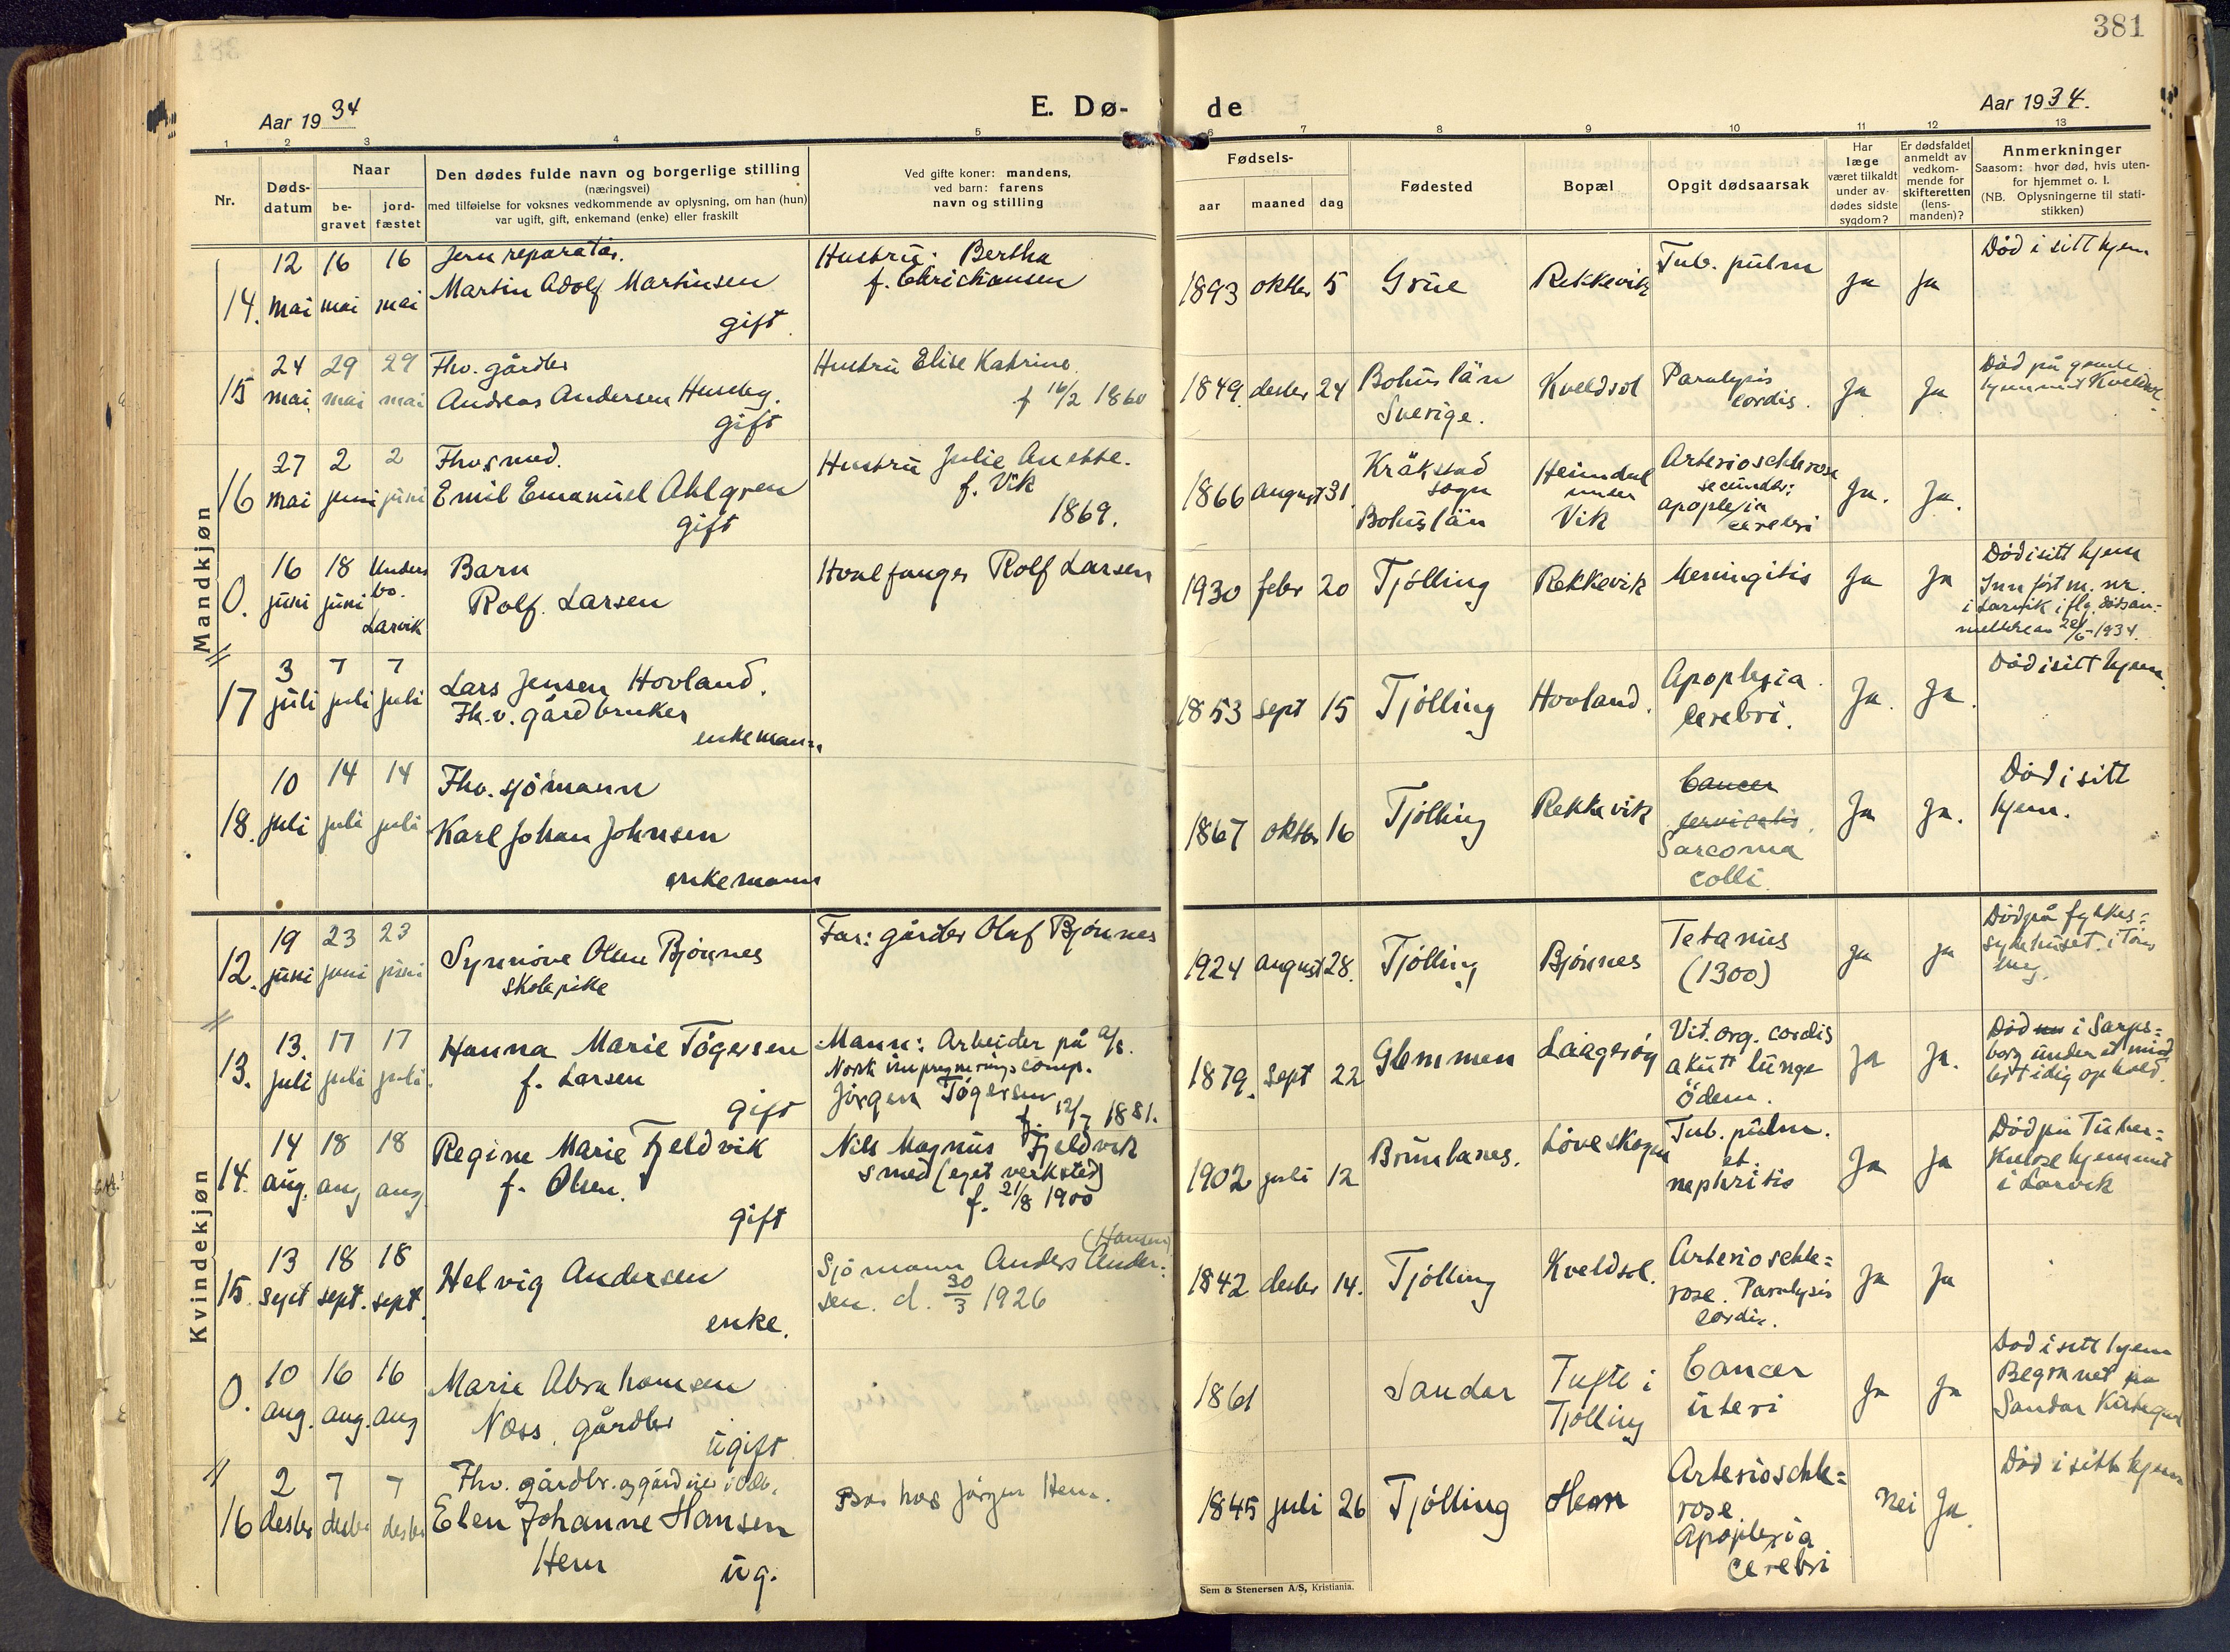 381
Aar 1934
E. Dø-
de
Aar 1934.
1 2 3 4 5 6 7 8 9 10 11 12 13
Nr.
Døds-
datum
Naar
be-
gravet
jord-
fæstet
Den dødes fulde navn og borgerlige stilling
(næringsvei)
med tilføielse for voksnes vedkommende av oplysning, om han (hun)
var ugift, gift, enkemand (enke) eller fraskilt
Ved gifte koner: mandens,
ved barn: farens
navn og stilling
Fødsels-
aar maaned dag
Fødested
Bopæl
Opgit dødsaarsak
Har
læge
været tilkaldt
under av-
dødes sidste
sygdom?
Er dødsfaldet
anmeldt av
vedkom-
mende for
skifteretten
(lens-
manden)?
Anmerkninger
Saasom: hvor død, hvis uten-
for hjemmet o. l.
(NB. Oplysningerne til stati-
stikken)
Mandkjøn
14.
12
mai
16
mai
16
mai
Jern reparatør.
Martin Adolf Martinsen
gift.
Hustru: Bertha
f. Christiansen
1893 oktbr 5
Grue
Rekkevik
Tub. pulm
Ja
Ja
Død i sitt hjem
15
24
mai
29
mai
29
mai
Fhv. gårdbr
Andreas Andersen Huseby.
gift
Hustru Elise Katrine.
f 16/2 1860
1849. desbr 24
Bohuslän
Sverige.
Kveldsol
Paralysis
cordis.
Ja
Ja
Død på gamle
hjemmet Kveldsol.
16
27
mai
2
juni
2
juni
Fhv smed.
Emil Emanuel Ahlgren
gift
Hustru Julie Anette.
f. Vik
1869.
1866 august 31
Kråkstad
sogn
Bohuslän
Heimdal
under
Vik
Arterioschlerose
secundær:
apoplexia
cerebri
Ja.
Ja.
0.
16
juni
18
juni
Undersbo.
Larvik
Barn
Rolf. Larsen
Hvalfanger Rolf Larsen
1930 febr 20
Tjølling
Rekkevik
Meningitis
Ja
Ja
Død i sitt hjem
Innført m. nr.
i Larvik iflg. dødsan-
meldelse 28/6-1934.
17
3
juli
7
juli
7
juli
Lars Jensen Hovland.
Fh.v. gårdbruker
enkemann
1853 sept 15
Tjølling
Hovland.
Apoplexia
cerebri.
Ja.
Ja.
Død i sitt hjem.
18.
10
juli
14
juli
14
juli
Fhv. sjömann
Karl Johan Johnsen
enkemann
1867 oktbr 16
Tjølling
Rekkevik
Cancer
cervicalis.
Sarcoma
colli.
Ja
Ja.
Død i sitt
hjem.
Kvindekjøn
12.
19
juni
23
juni
23
juni
Synnöve Olsen Bjönnes
skolepike
Far: gårdbr Olaf Bjönnes
1924 august 28.
Tjølling
Bjönnes
Tetanus
(1300)
Ja
Ja
Død på fylkes-
sykehuset i Töns
berg.
13.
13.
juli
17
juli
17
juli.
Hanna Marie Tögersen
f. Larsen
gift
Mann: Arbeider på A/S.
Norsk impregneringscomp.
Jörgen Tögersen
f. 12/7 1881.
1879. sept 22
Glemmen
Laagerøy
Vit. org. cordis
akutt lunge
ödem.
Ja
Ja.
Død i Sarps-
borg under et mid
lertidig ophold.
14.
14
aug.
18
aug
18
aug
Regine Marie Fjeldvik
f. Olsen.
gift
Nils Magnus Fjeldvik
smed (eget verksted)
f. 21/8 1900
1902 juli 12
Brunlanes.
Löveskogen
Tub. pulm.
et.
nephritis
Ja
Ja
Død på Tuber-
kulosehjemmet
i Larvik
15.
13
sept
18
sept.
18
sept.
Helvig Andersen
enke.
(Hansen)
Sjömann Anders Ander-
sen. d. 30/3 1926
1842 desbr 14.
Tjølling
Kveldsol.
Arterioschle-
rose. Paralysis
cordis.
Ja
Ja
0.
10
aug.
16
aug.
16
aug
Marie Abrahamsen
Næss, gårdbr
ugift
1861
Sandar
Tufte i
Tjölling
Cancer
uteri
Ja
Ja
Død i sitt hjem
Begravet på
Sandar Kirkegard
16
2
desbr
7
desbr
7
desbr
Fhv. gårdbr.
Elen Johanne Hansen
Hem
ug.
Bor hos Jörgen Hem.
1845 juli 26
Tjølling
Hem
Arterioschle-
rose
Apoplexia
cerebri
Nei
Ja.
Død i sitt hjem
Sem & Stenersen A/S, Kristiania.